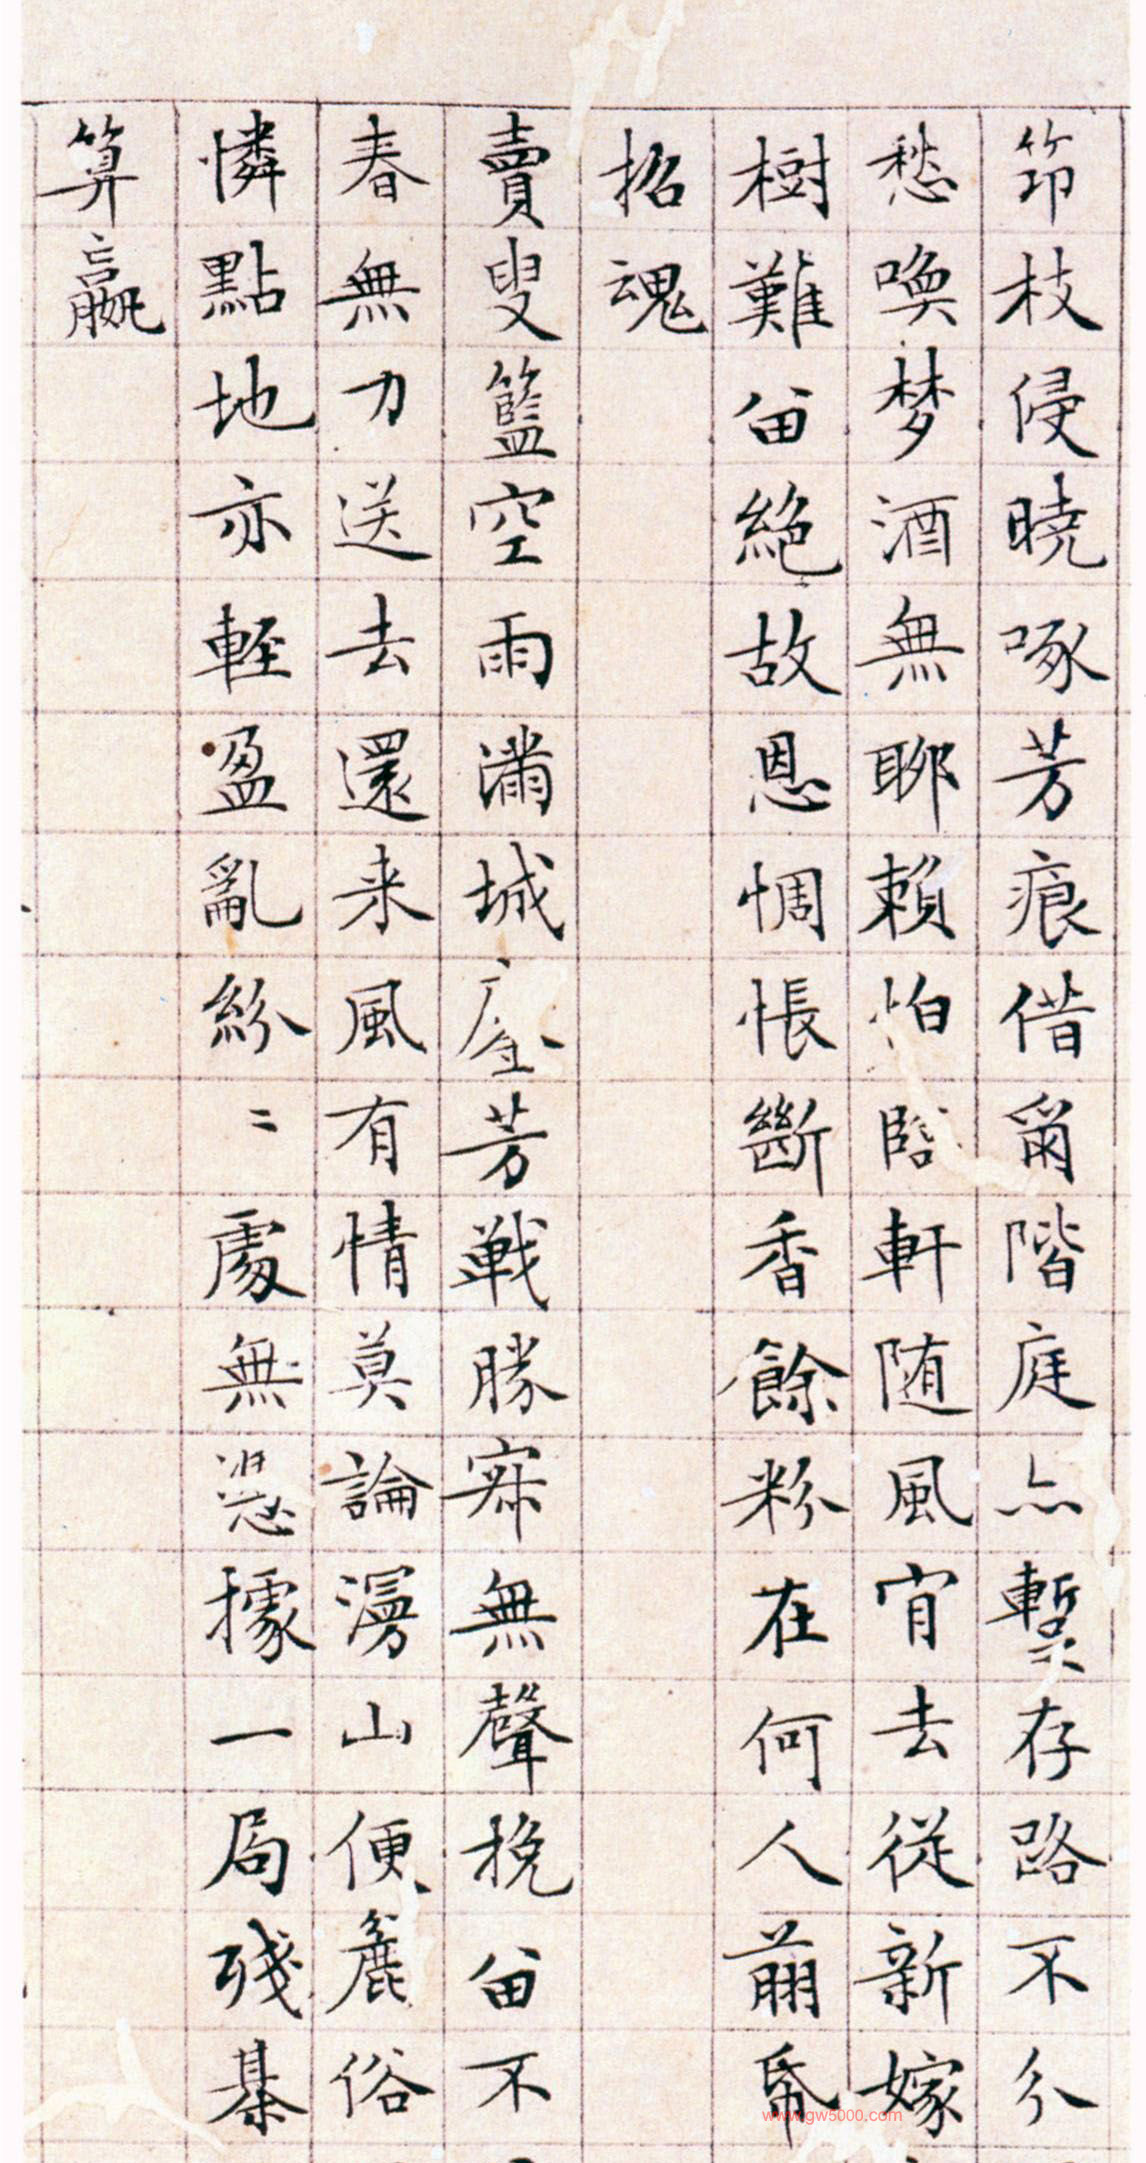 笻枝侵曉啄芳痕借爾階庭亦暫存路不分
愁喚梦酒無聊賴怕臨軒随風宵去従新嫁
樹難留絶故恩惆悵斷香餘粉在何人剪帋
招魂
賣叟籃空雨滿城塵芳戰勝寂無聲挽留不
春無力送去還来風有情莫論漫山便麁俗
憐點地亦輕盈亂紛〻處無憑據一局殘棊
算贏
www.gw5000.com